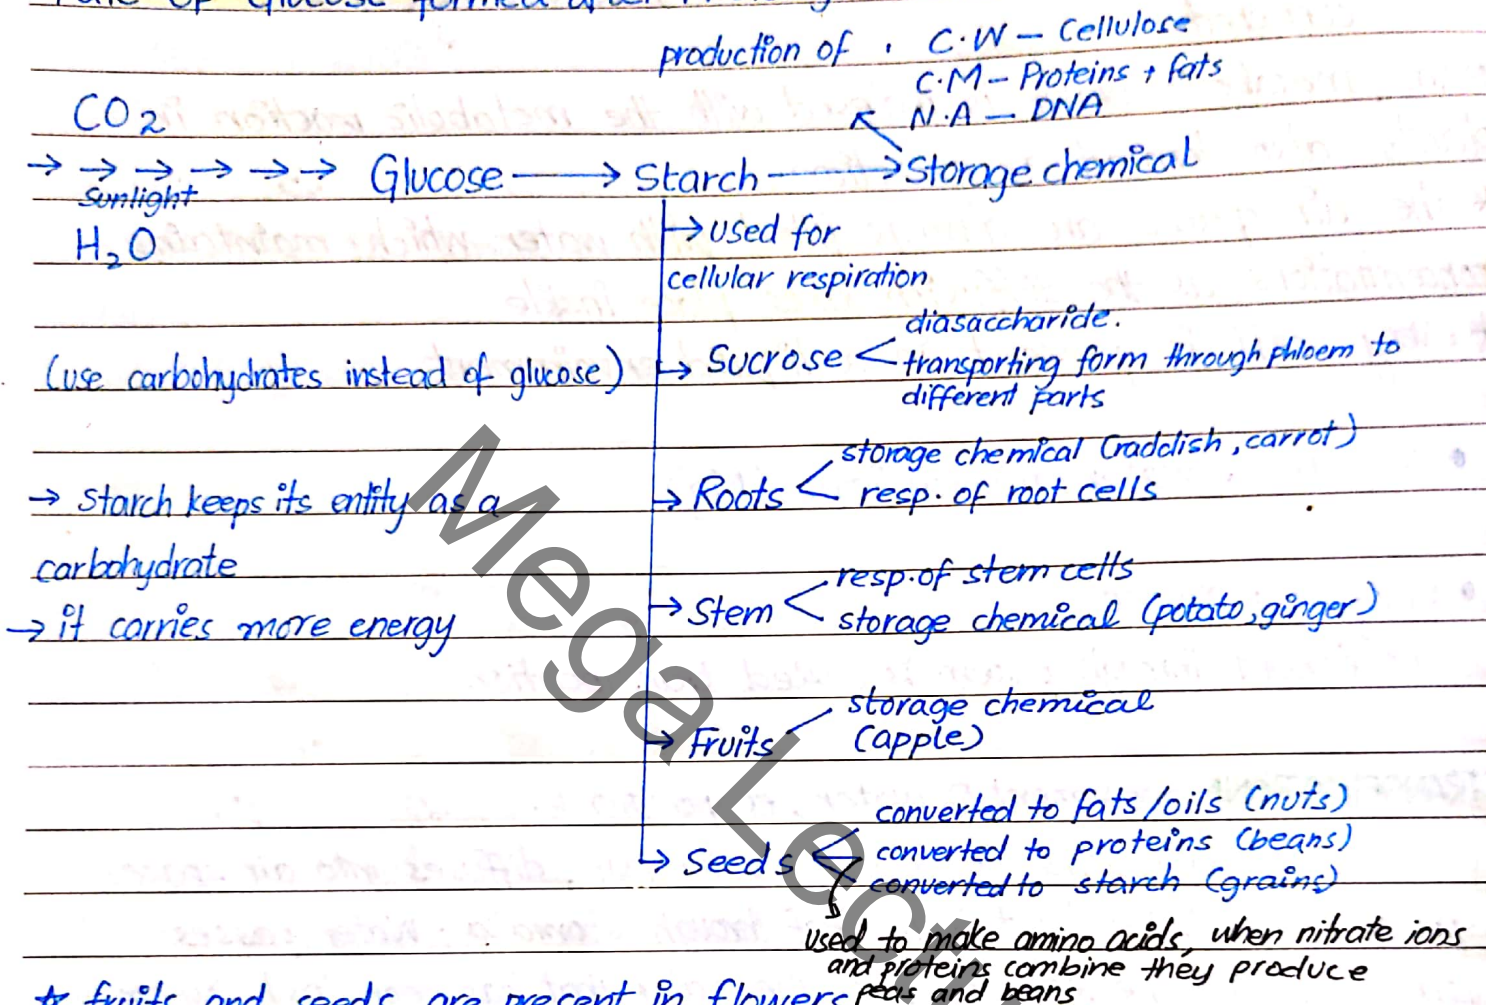 of Glucose formed after
production of . C.W – Cellulose
C.M – Proteins + fats
N.A – DNA
CO2
→ → → → → → Glucose → Starch → Storage chemical
Sunlight
H2O
→ used for
cellular respiration
(use carbohydrates instead of glucose)
→ Sucrose < diasaccharide.
transporting form through phloem to
different parts
→ starch keeps its entity as a
carbohydrate
→ it carries more energy
→ Roots < storage chemical (raddish, carrot)
resp. of root cells
→ Stem < resp. of stem cells
storage chemical (potato, ginger)
→ Fruits storage chemical
(apple)
→ Seeds < converted to fats/oils (nuts)
converted to proteins (beans)
converted to starch (grains)
used to make amino acids, when nitrate ions
and proteins combine they produce
peas and beans
* fruits and seeds are present in flowers
Mega Lect